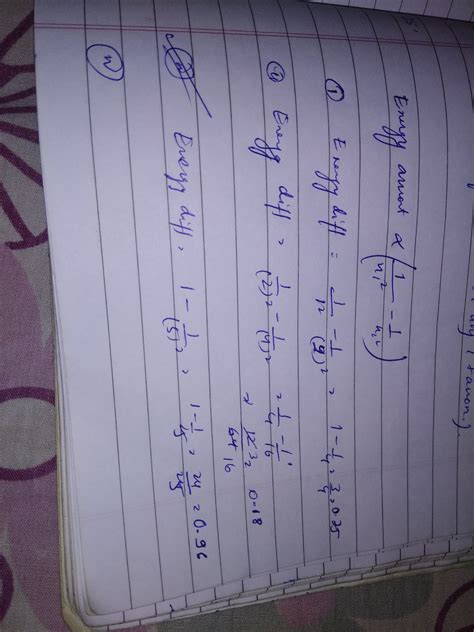 Energy amount ∝ (1/n₁² - 1/n₂²)
① Energy diff = 1/1² - 1/(2)² = 1 - 1/4 = 3/4 = 0.75
② Energy diff = 1/(2)² - 1/(4)² = 1/4 - 1/16
⇒ 12 3/64 16 ⇒ 0.18
Energy diff = 1 - 1/(5)² = 1 - 1/25 = 24/25 = 0.96